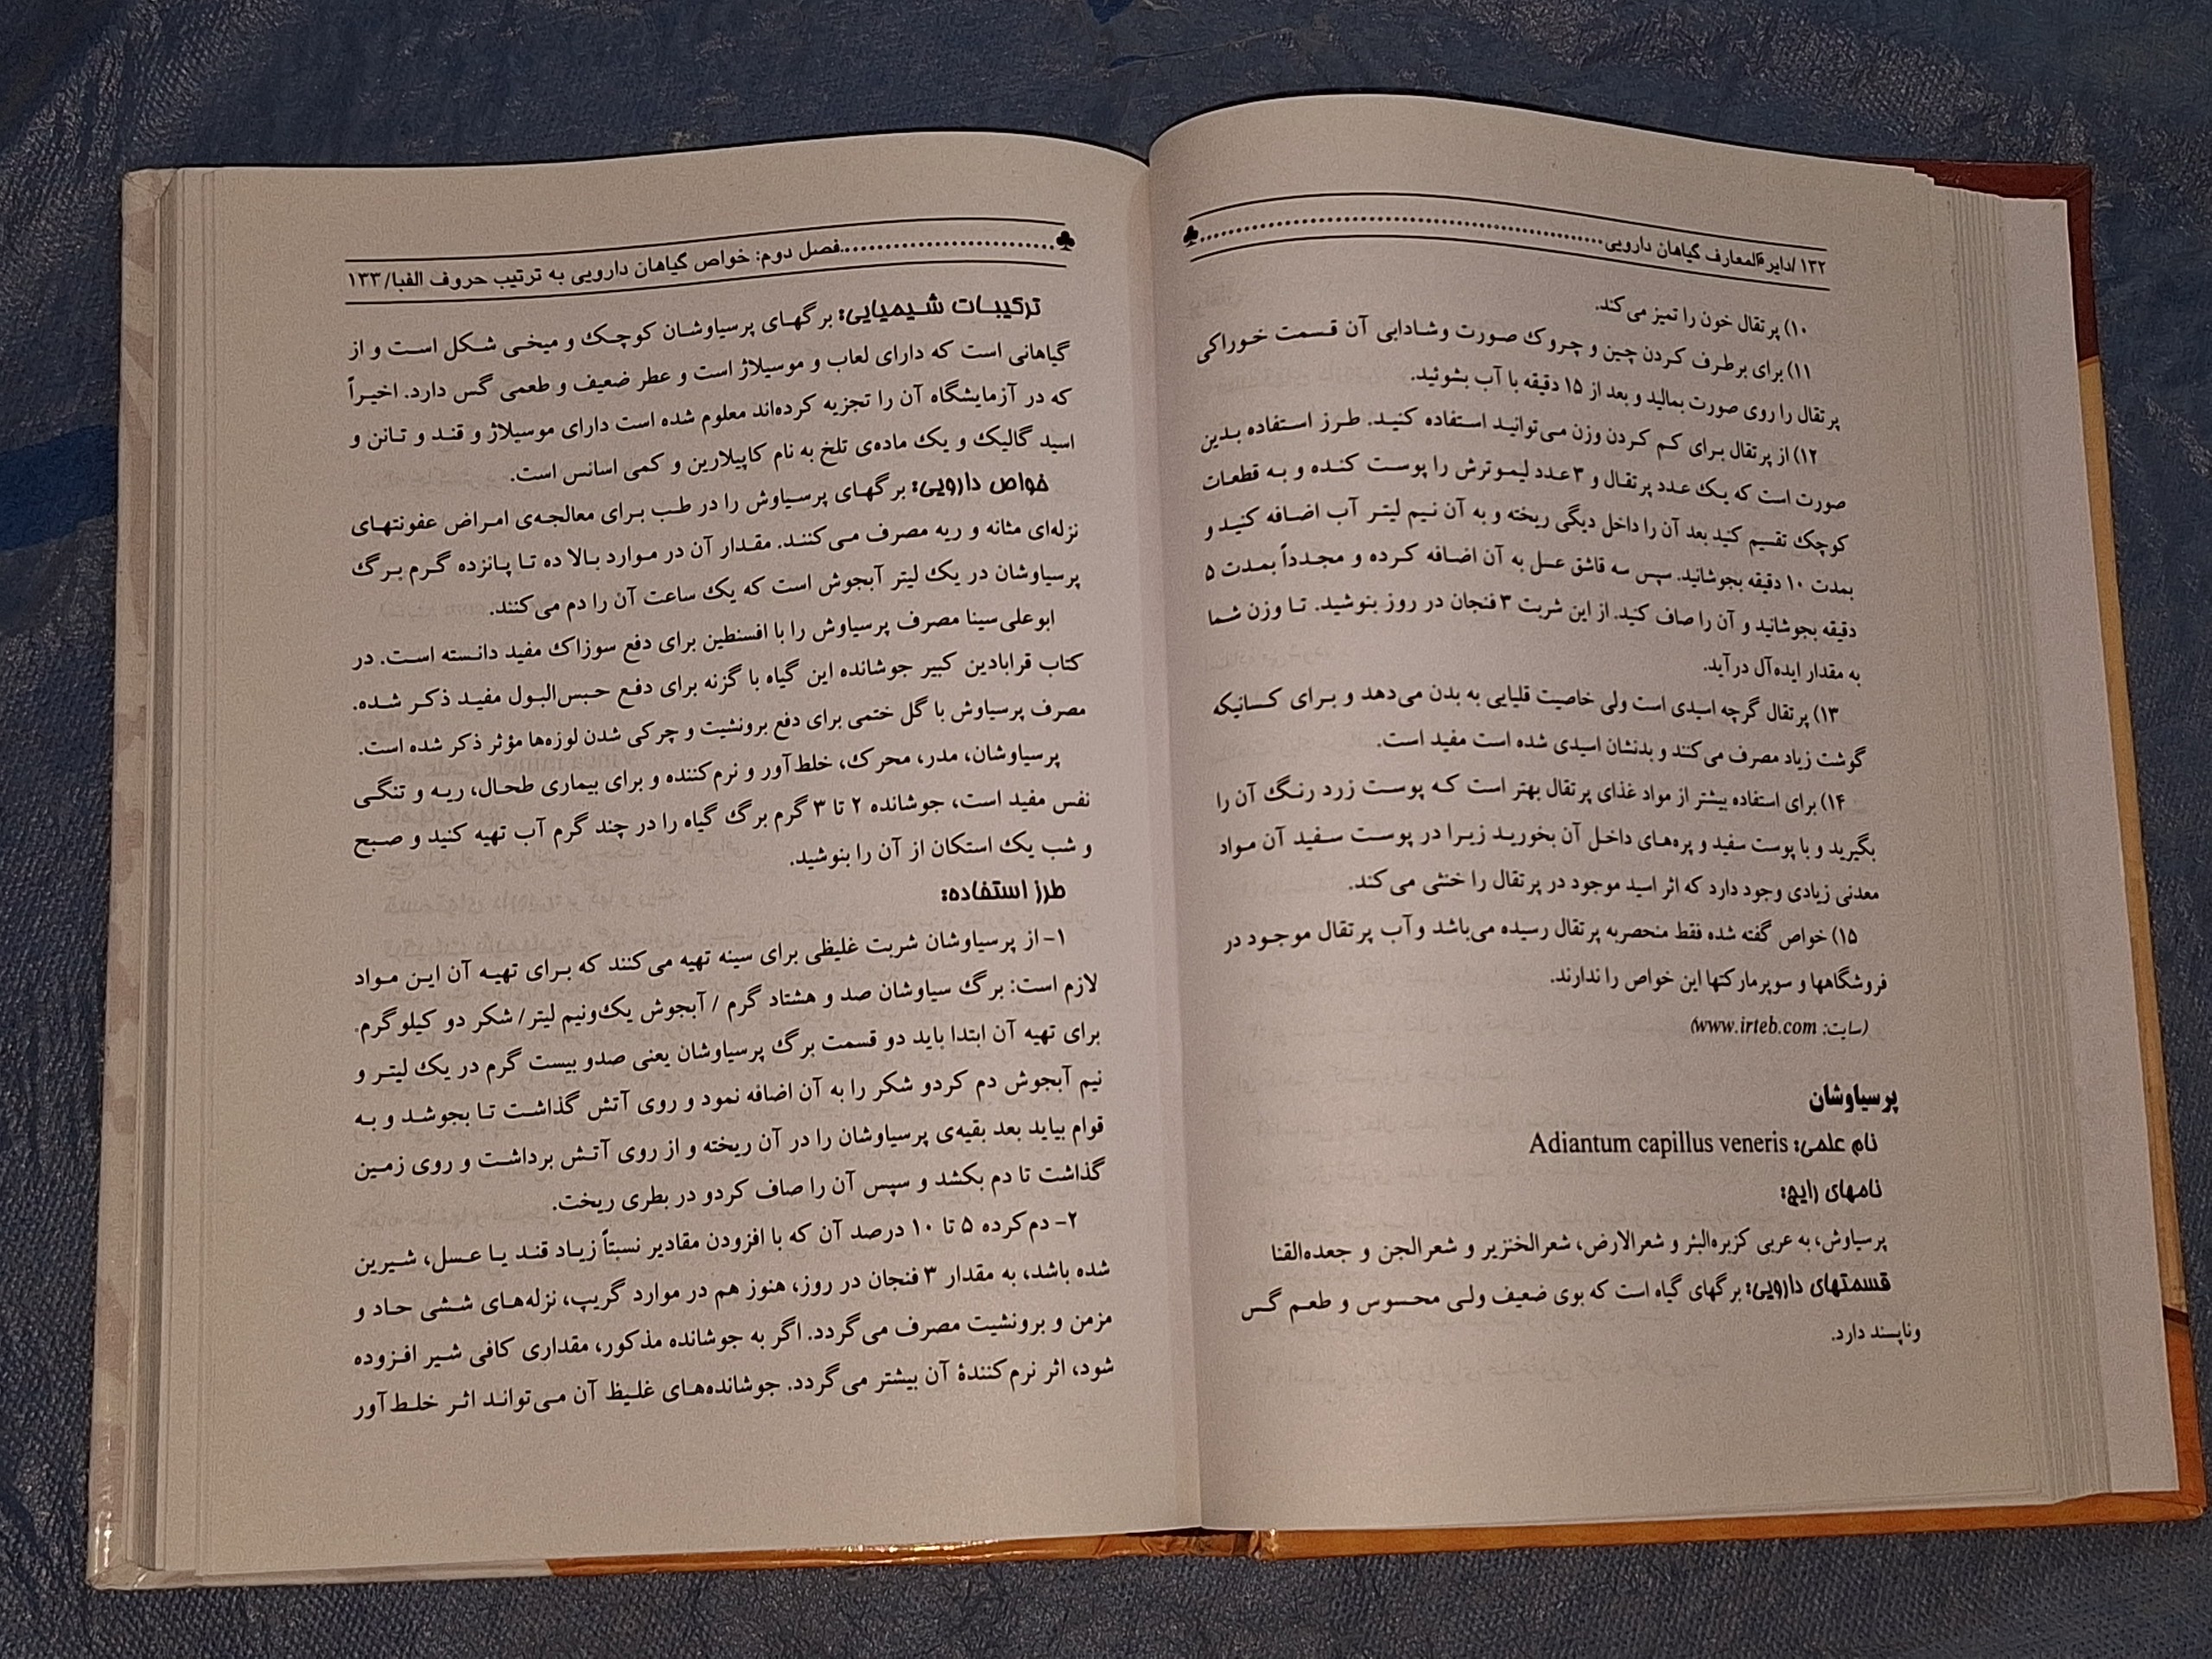 ۱۳۲ /دایرةالمعارف گیاهان دارویی
۱۰) پرتقال خون را تمیز می‌کند.
۱۱) برای برطرف کردن چین و چروک صورت وشادابی آن قسمت خوراکی
پرتقال را روی صورت بمالید و بعد از ۱۵ دقیقه با آب بشوئید.
۱۲) از پرتقال برای کم کردن وزن می‌توانید استفاده کنید. طرز استفاده بدین
صورت است که یک عدد پرتقال و ۳ عدد لیموترش را پوست کنده و به قطعات
کوچک تقسیم کنید بعد آن را داخل دیگی ریخته و به آن نیم لیتر آب اضافه کنید و
بمدت ۱۰ دقیقه بجوشانید. سپس سه قاشق عسل به آن اضافه کرده و مجدداً بمدت ۵
دقیقه بجوشانید و آن را صاف کنید. از این شربت ۳ فنجان در روز بنوشید. تا وزن شما
به مقدار ایده‌آل درآید.
۱۳) پرتقال گرچه اسیدی است ولی خاصیت قلیایی به بدن می‌دهد و برای کسانیکه
گوشت زیاد مصرف می‌کنند و بدنشان اسیدی شده است مفید است.
۱۴) برای استفاده بیشتر از مواد غذای پرتقال بهتر است که پوست زرد رنگ آن را
بگیرید و با پوست سفید و پره‌های داخل آن بخورید زیرا در پوست سفید آن مواد
معدنی زیادی وجود دارد که اثر اسید موجود در پرتقال را خنثی می‌کند.
۱۵) خواص گفته شده فقط منحصربه پرتقال رسیده می‌باشد و آب پرتقال موجود در
فروشگاهها و سوپرمارکتها این خواص را ندارند.
(سایت: www.irteb.com)
پرسیاوشان
نام علمی: Adiantum capillus veneris
نامهای رایج:
پرسیاوش، به عربی کزبره‌البئر و شعرالارض، شعرالخنزیر و شعرالجن و جعده‌القنا
قسمتهای دارویی: برگهای گیاه است که بوی ضعیف ولی محسوس و طعم گس
وناپسند دارد.
فصل دوم: خواص گیاهان دارویی به ترتیب حروف الفبا/ ۱۳۳
ترکیبات شیمیایی: برگهای پرسیاوشان کوچک و میخی شکل است و از
گیاهانی است که دارای لعاب و موسیلاژ است و عطر ضعیف و طعمی گس دارد. اخیراً
که در آزمایشگاه آن را تجزیه کرده‌اند معلوم شده است دارای موسیلاژ و قند و تانن و
اسید گالیک و یک ماده‌ی تلخ به نام کاپیلارین و کمی اسانس است.
خواص دارویی: برگهای پرسیاوش را در طب برای معالجه‌ی امراض عفونتهای
نزله‌ای مثانه و ریه مصرف می‌کنند. مقدار آن در موارد بالا ده تا پانزده گرم برگ
پرسیاوشان در یک لیتر آبجوش است که یک ساعت آن را دم می‌کنند.
ابوعلی‌سینا مصرف پرسیاوش را با افسنطین برای دفع سوزاک مفید دانسته است. در
کتاب قرابادین کبیر جوشانده این گیاه با گزنه برای دفع حبس‌البول مفید ذکر شده.
مصرف پرسیاوش با گل ختمی برای دفع برونشیت و چرکی شدن لوزه‌ها مؤثر ذکر شده است.
پرسیاوشان، مدر، محرک، خلط‌آور و نرم‌کننده و برای بیماری طحال، ریه و تنگی
نفس مفید است، جوشانده ۲ تا ۳ گرم برگ گیاه را در چند گرم آب تهیه کنید و صبح
و شب یک استکان از آن را بنوشید.
طرز استفاده:
۱- از پرسیاوشان شربت غلیظی برای سینه تهیه می‌کنند که برای تهیه آن این مواد
لازم است: برگ سیاوشان صد و هشتاد گرم / آبجوش یک‌ونیم لیتر/ شکر دو کیلوگرم.
برای تهیه آن ابتدا باید دو قسمت برگ پرسیاوشان یعنی صدو بیست گرم در یک لیتر و
نیم آبجوش دم کردو شکر را به آن اضافه نمود و روی آتش گذاشت تا بجوشد و به
قوام بیاید بعد بقیه‌ی پرسیاوشان را در آن ریخته و از روی آتش برداشت و روی زمین
گذاشت تا دم بکشد و سپس آن را صاف کردو در بطری ریخت.
۲- دم‌کرده ۵ تا ۱۰ درصد آن که با افزودن مقادیر نسبتاً زیاد قند یا عسل، شیرین
شده باشد، به مقدار ۳ فنجان در روز، هنوز هم در موارد گریپ، نزله‌های ششی حاد و
مزمن و برونشیت مصرف می‌گردد. اگر به جوشانده مذکور، مقداری کافی شیر افزوده
شود، اثر نرم‌کنندۀ آن بیشتر می‌گردد. جوشانده‌های غلیظ آن می‌تواند اثر خلط‌آور